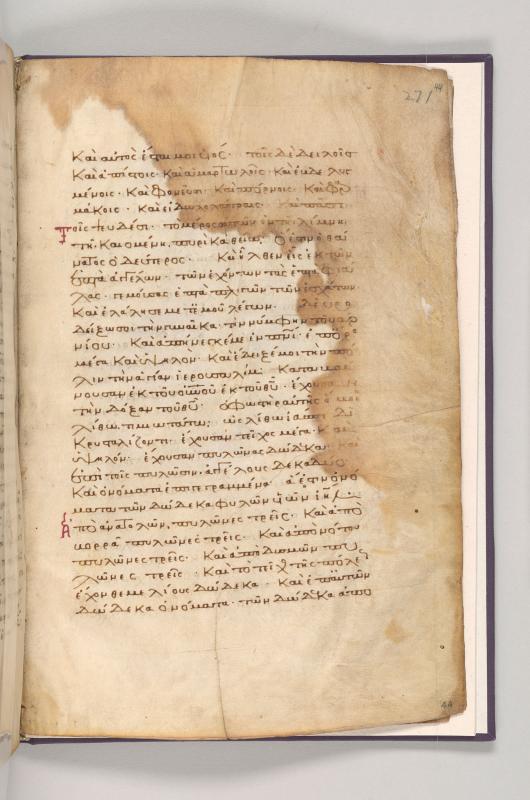 271 44
Καὶ αὐτὸς ἔσται μοι υἱός· τοῖς δὲ δειλοῖς
Καὶ ἀπίστοις· Καὶ ἁμαρτωλοῖς· Καὶ ἐβδελυγ
μένοις· Καὶ φονεῦσι· Καὶ πόρνοις· Καὶ φαρ
μάκοις· Καὶ εἰδωλολάτραις· Καὶ πᾶσι
τοῖς ψευδέσι· τὸ μέρος αὐτῶν ἐν τῇ λίμνῃ
τῇ Καιομένῃ πυρὶ Καὶ θείῳ· ὅ ἐστιν ὁ θά
νατος ὁ δεύτερος· Καὶ ἦλθεν εἷς ἐκ τῶν
ἑπτὰ ἀγγέλων· τῶν ἐχόντων τὰς ἑπτὰ φιά
λας· γεμούσας ἑπτὰ πληγῶν τῶν ἐσχάτων
Καὶ ἐλάλησε μετ' ἐμοῦ λέγων· δεῦρο
δείξω σοι τὴν γυναῖκα· τὴν νύμφην τοῦ ἀρ
νίου· Καὶ ἀπήνεγκέ με ἐν πνι· ἐπ' ὄρος
μέγα Καὶ ὑψηλόν· Καὶ ἔδειξέ μοι τὴν πό
λιν τὴν ἁγίαν ἱερουσαλήμ· Καταβαί
νουσαν ἐκ τοῦ οὐνοῦ ἐκ τοῦ θυ· ἔχουσαν
τὴν δόξαν τοῦ θυ· ὁ φωστὴρ αὐτῆς ὅμοιος
λίθῳ τιμιωτάτῳ· ὡς λίθῳ ἰάσπιδι
Κρυσταλίζοντι· ἔχουσαν τεῖχος μέγα· Καὶ
ὑψηλόν· ἔχουσαν πυλῶνας δώδεκα· Καὶ
ἐπὶ τοῖς πυλῶσιν ἀγγέλους δεκαδύο
Καὶ ὀνόματα ἐπιγεγραμμένα· ἅ ἐστιν ὀνό
ματα τῶν δώδεκα φυλῶν υἱῶν ιηλ·
ἀπὸ ἀνατολῶν, πυλῶνες τρεῖς· Καὶ ἀπὸ
βορρᾶ πυλῶνες τρεῖς· Καὶ ἀπὸ νότου
πυλῶνες τρεῖς· Καὶ ἀπὸ δυσμῶν πυ
λῶνες τρεῖς· Καὶ τὸ τεῖχος τῆς πόλεως
ἔχον θεμελίους δώδεκα· Καὶ ἐπ' αὐτῶν
δώδεκα ὀνόματα· τῶν δώδεκα ἀπο
44